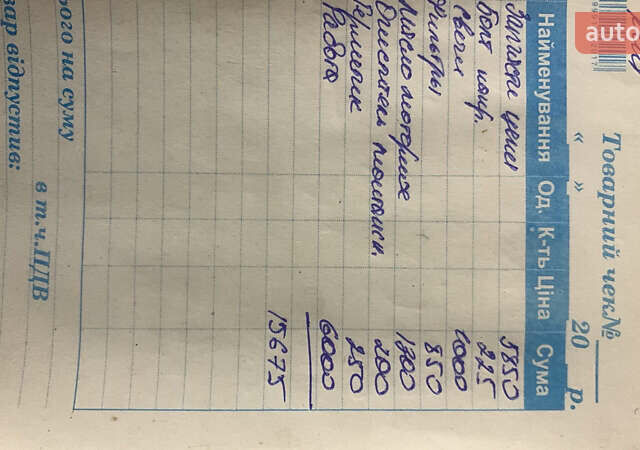 auto
Товарний чек№
« » 20 р.
Найменування Од. К-ть Ціна Сума
Запчасти цепи 5850
Болт напр. 225
Свечи 1000
Фильтры 850
Масло моторное 1300
Очиститель 200
Герметик 250
Работа 6000
15675
ого на суму
в т.ч.ПДВ
вар відпустив: